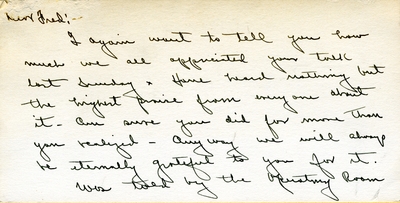 Dear Fred;--
I again want to tell you how
much we all appreciated your talk
last Sunday & Have heard nothing but
the highest praise from everyone about
it - Am sure you did far more than
you realized - Anyway we will always
be eternally grateful to you for it.
Was told by the Operating Room